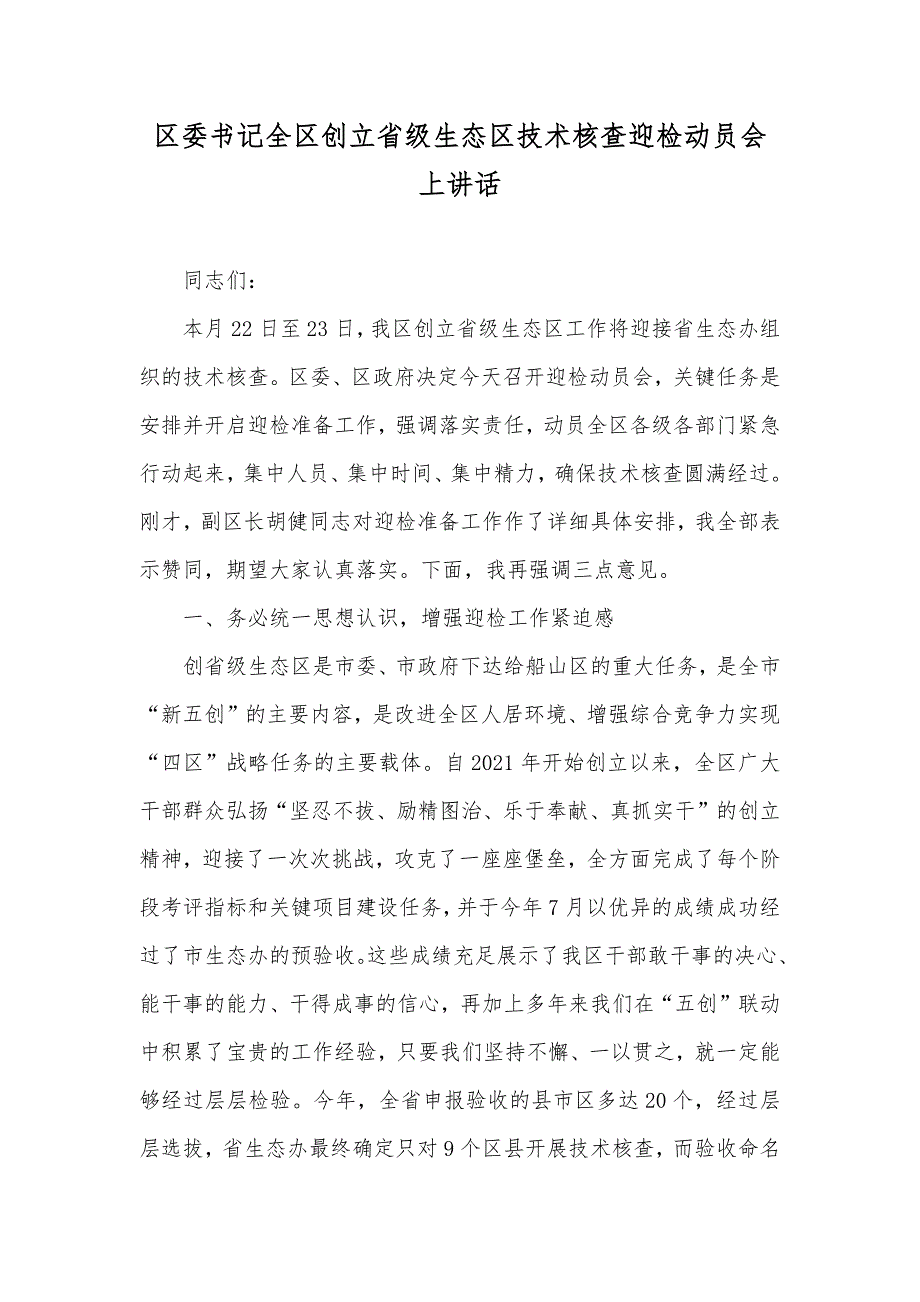 区委书记全区创立省级生态区技术核查迎检动员会
上讲话
同志们：
本月 22 日至 23 日，我区创立省级生态区工作将迎接省生态办组
织的技术核查。区委、区政府决定今天召开迎检动员会，关键任务是
安排并开启迎检准备工作，强调落实责任，动员全区各级各部门紧急
行动起来，集中人员、集中时间、集中精力，确保技术核查圆满经过。
刚才，副区长胡健同志对迎检准备工作作了详细具体安排，我全部表
示赞同，期望大家认真落实。下面，我再强调三点意见。
一、务必统一思想认识，增强迎检工作紧迫感
创省级生态区是市委、市政府下达给船山区的重大任务，是全市
“新五创”的主要内容，是改进全区人居环境、增强综合竞争力实现
“四区”战略任务的主要载体。自 2021 年开始创立以来，全区广大
干部群众弘扬“坚忍不拔、励精图治、乐于奉献、真抓实干”的创立
精神，迎接了一次次挑战，攻克了一座座堡垒，全方面完成了每个阶
段考评指标和关键项目建设任务，并于今年 7 月以优异的成绩成功经
过了市生态办的预验收。这些成绩充足展示了我区干部敢干事的决心、
能干事的能力、干得成事的信心，再加上多年来我们在“五创”联动
中积累了宝贵的工作经验，只要我们坚持不懈、一以贯之，就一定能
够经过层层检验。今年，全省申报验收的县市区多达 20 个，经过层
层选拔，省生态办最终确定只对 9 个区县开展技术核查，而验收命名